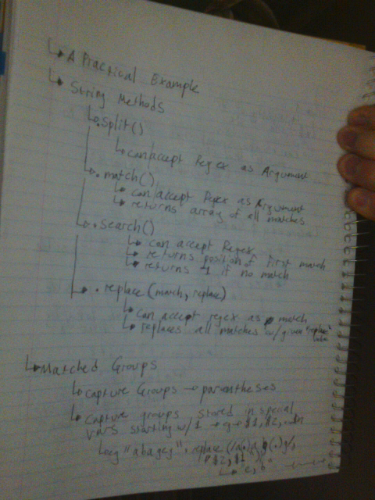 ↳ A Practical Example
↳ String Methods
↳ .split()
↳ can accept Regex as Argument
↳ .match()
↳ can accept Regex as Argument
↳ returns array of all matches
↳ .search()
↳ can accept Regex
↳ returns position of first match
↳ returns -1 if no match
↳ .replace(match, replace)
↳ can accept regex as match
↳ replaces all matches w/ given "replace"
↳ Matched Groups
↳ Capture Groups → parentheses
↳ Capture groups stored in special
vars starting w/ $ → eg $1, $2,